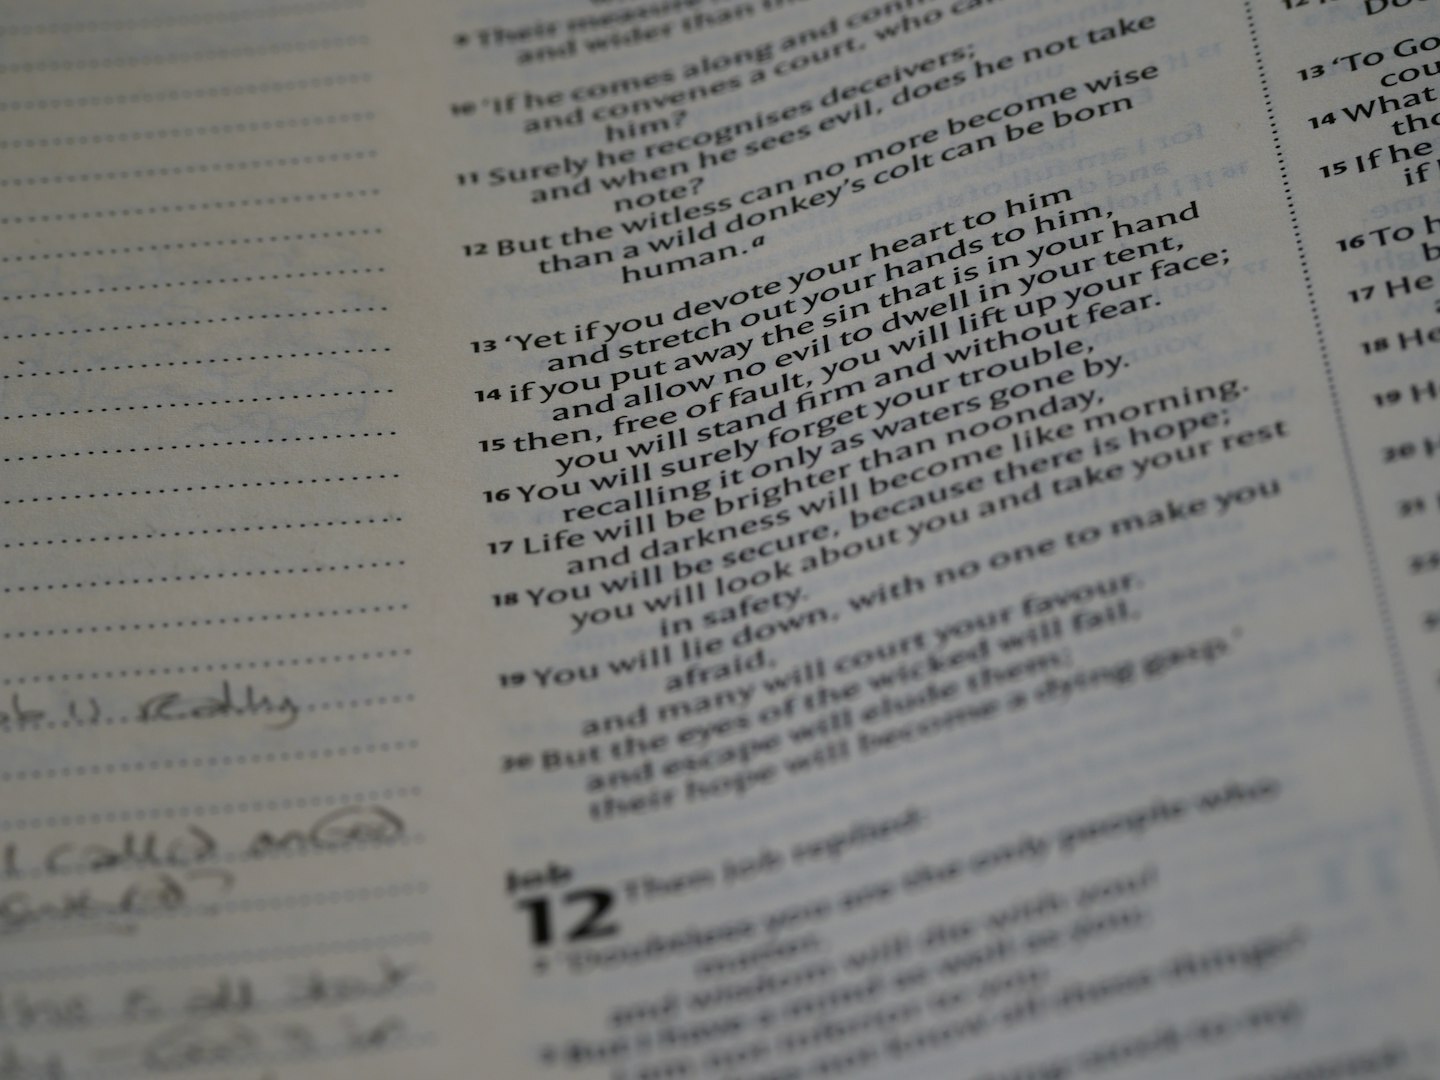 9 Their measure
and wider than the
10 ‘If he comes along and
and convenes a court, who
him?
11 Surely he recognises deceivers;
and when he sees evil, does he not take
note?
12 But the witless can no more become wise
than a wild donkey’s colt can be born
human.a
13 ‘Yet if you devote your heart to him
and stretch out your hands to him,
14 if you put away the sin that is in your hand
and allow no evil to dwell in your tent,
15 then, free of fault, you will lift up your face;
you will stand firm and without fear.
16 You will surely forget your trouble,
recalling it only as waters gone by.
17 Life will be brighter than noonday,
and darkness will become like morning.
18 You will be secure, because there is hope;
you will look about you and take your rest
in safety.
19 You will lie down, with no one to make you
afraid,
and many will court your favour.
20 But the eyes of the wicked will fail,
and escape will elude them;
their hope will become a dying gasp.’
Job
12 Then Job replied:
‘Doubtless you are the only people who
matter,
and wisdom will die with you!
But I have a mind as well as you;
I am not inferior to you.
not know all these things?
13 ‘To Go
cou
14 What
tho
15 If he
if
16 To h
b
17 He
18 He
19 H
20 H
21
really
I called on God
is all about